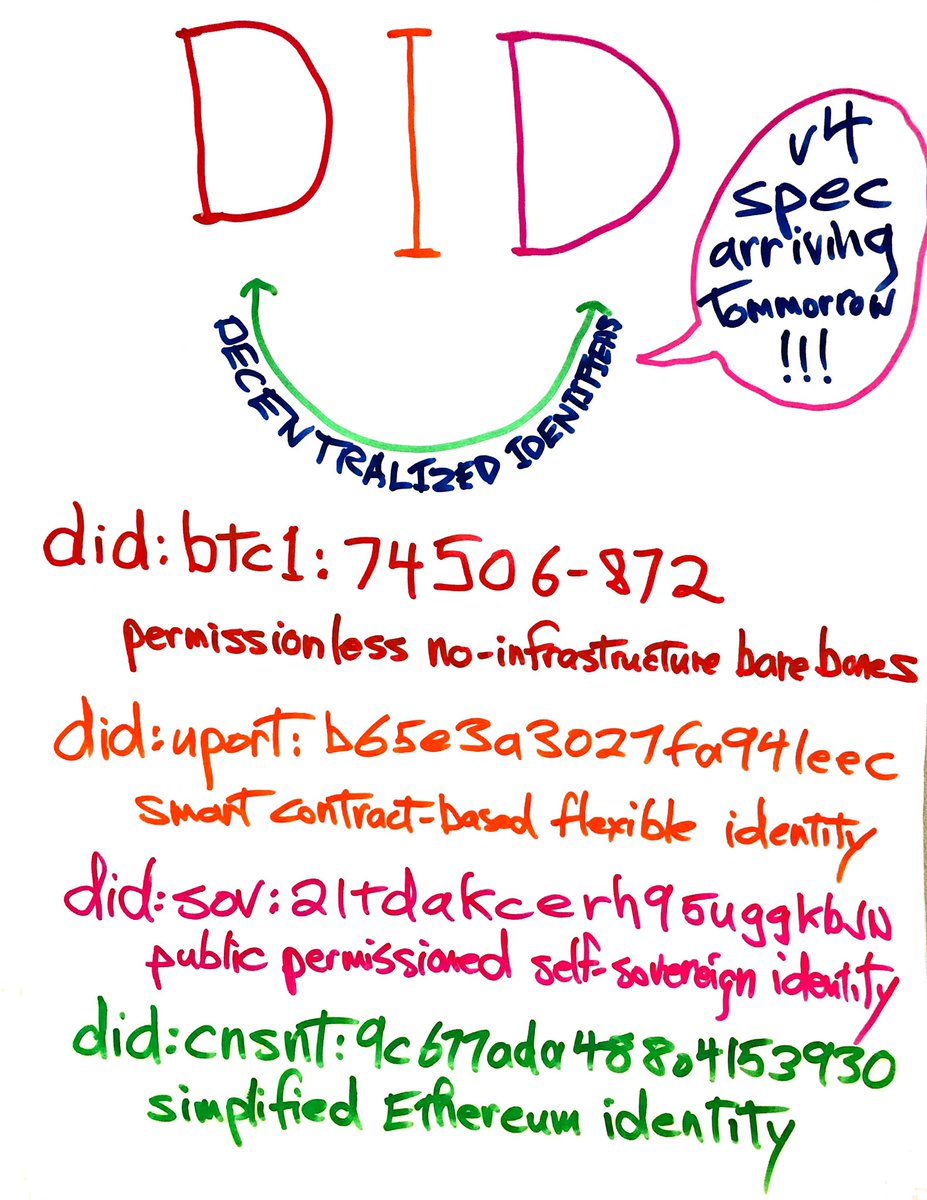 DID
v4
spec
arriving
Tommorrow
!!!
DECENTRALIZED IDENTIFIERS
did:btc1:74506-872
permissionless no-infrastructure bare bones
did:uport:b65e3a3027fa941eec
smart contract-based flexible identity
did:sov:21tdakcerh95uggkbJN
public permissioned self-sovereign identity
did:cnsnt:9c677ada48804153930
simplified Ethereum identity